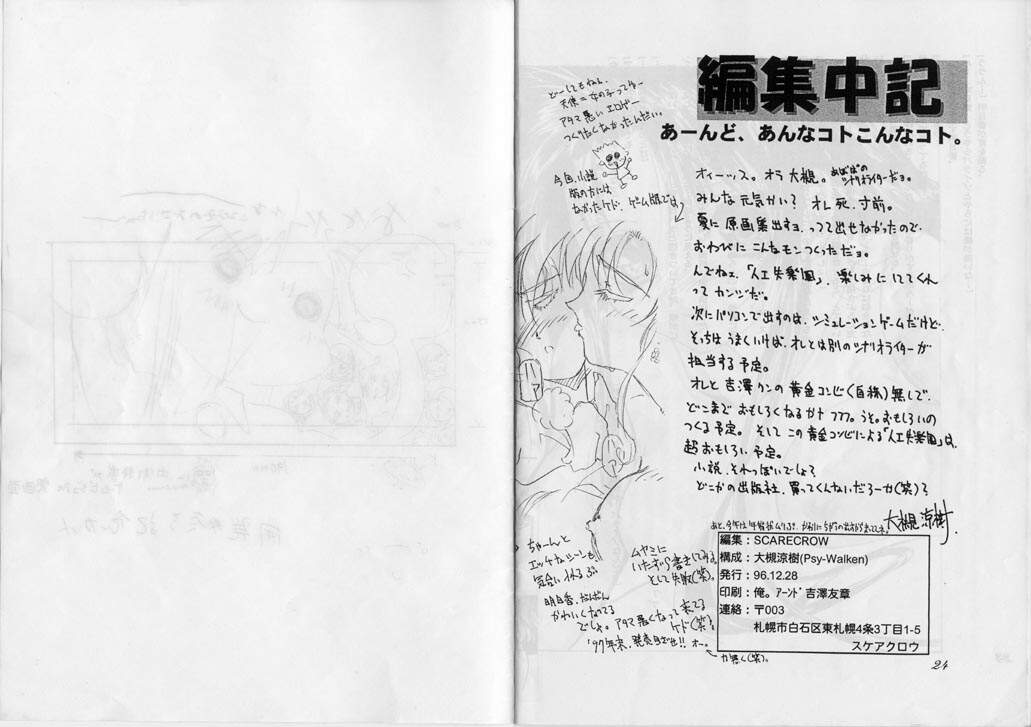 編集中記
あーんど、あんなコトこんなコト。
どーしてもねん、
天使=女の子ってゲー
アタマ悪いエロゲー
つくりたくなかったんだい。
今回、小説
版の方には
なかったケド、ゲーム版では、
オィーッス。オラ大槻。あぼぱの
シナリオライターだョ。
みんな元気かい? オレ死、寸前。
夏に原画集出すョ、って出せなかったので、
おわびにこんなモンつくっただョ。
んでねェ、「人工失楽園」、楽しみにしててくれ
ってカンジだ。
次にパソコンで出すのは、シミュレーションゲームだけど、
そっちはうまくいけば、オレとは別のシナリオライターが
担当する予定。
オレと吉澤クンの黄金コンビ(自称)無しで、
どこまでおもしろくなるかナ フフフ。うそ。おもしろいの
つくる予定。そしてこの黄金コンビによる「人工失楽園」は、
超おもしろい予定。
小説、それっぽいでしょ?
どこかの出版社、買ってくんないだろーか(笑)?
大槻涼樹
ちゃーんと
エッチなシーンも
気合い入れるぶ
ムヤミに
いたずら書きしてみる。
として失敗(笑)。
明日香、だんだん
かわいくなってる
でしょ。アタマ悪くなって来てる
ケド(笑)。
'97年末、発売予定!! オー。
力無く(笑)。
編集:SCARECROW
構成:大槻涼樹(Psy-Walken)
発行:96.12.28
印刷:俺。アーンド吉澤友章
連絡:〒003
札幌市白石区東札幌4条3丁目1-5
スケアクロウ
24